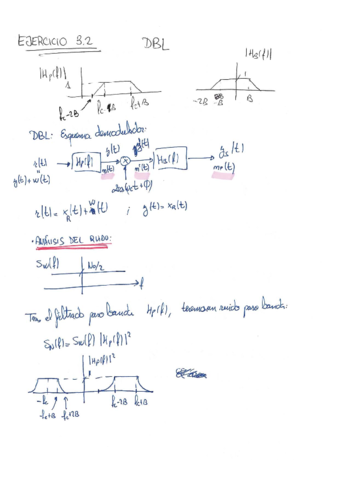 EJERCICIO 3.2 DBL
|Hp(f)| |HB(f)|
1 1
fc-2B fc fc+B -2B -B B
DBL: Esquema demodulador:
r(t) Hp(f) y(t) HB(f) (t)
y(t)+w(t) n(t) n'(t)
r(t) = xR(t)+w(t) ; y(t) = xR(t)
• ANÁLISIS DEL RUIDO:
Sw(f) No/2
f
Tras el filtrado paso banda Hp(f), tenemos ruido paso banda:
SN(f) = Sw(f) |Hp(f)|²
|Hp(f)|²
-fc fc-2B fc+B
-fc+B